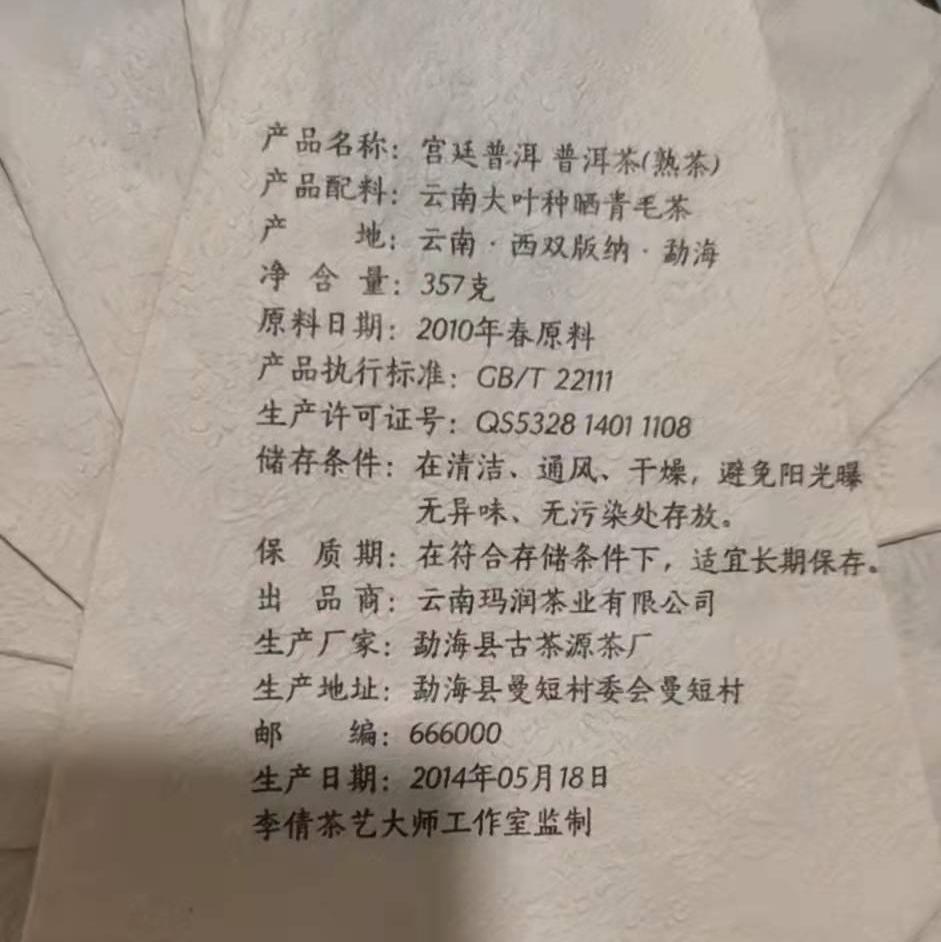 产品名称：宫廷普洱 普洱茶(熟茶)
产品配料：云南大叶种晒青毛茶
产 地：云南·西双版纳·勐海
净 含 量：357克
原料日期：2010年春原料
产品执行标准：GB/T 22111
生产许可证号：QS5328 1401 1108
储存条件：在清洁、通风、干燥，避免阳光曝
无异味、无污染处存放。
保 质 期：在符合存储条件下，适宜长期保存。
出 品 商：云南玛润茶业有限公司
生产厂家：勐海县古茶源茶厂
生产地址：勐海县曼短村委会曼短村
邮 编：666000
生产日期：2014年05月18日
李倩茶艺大师工作室监制